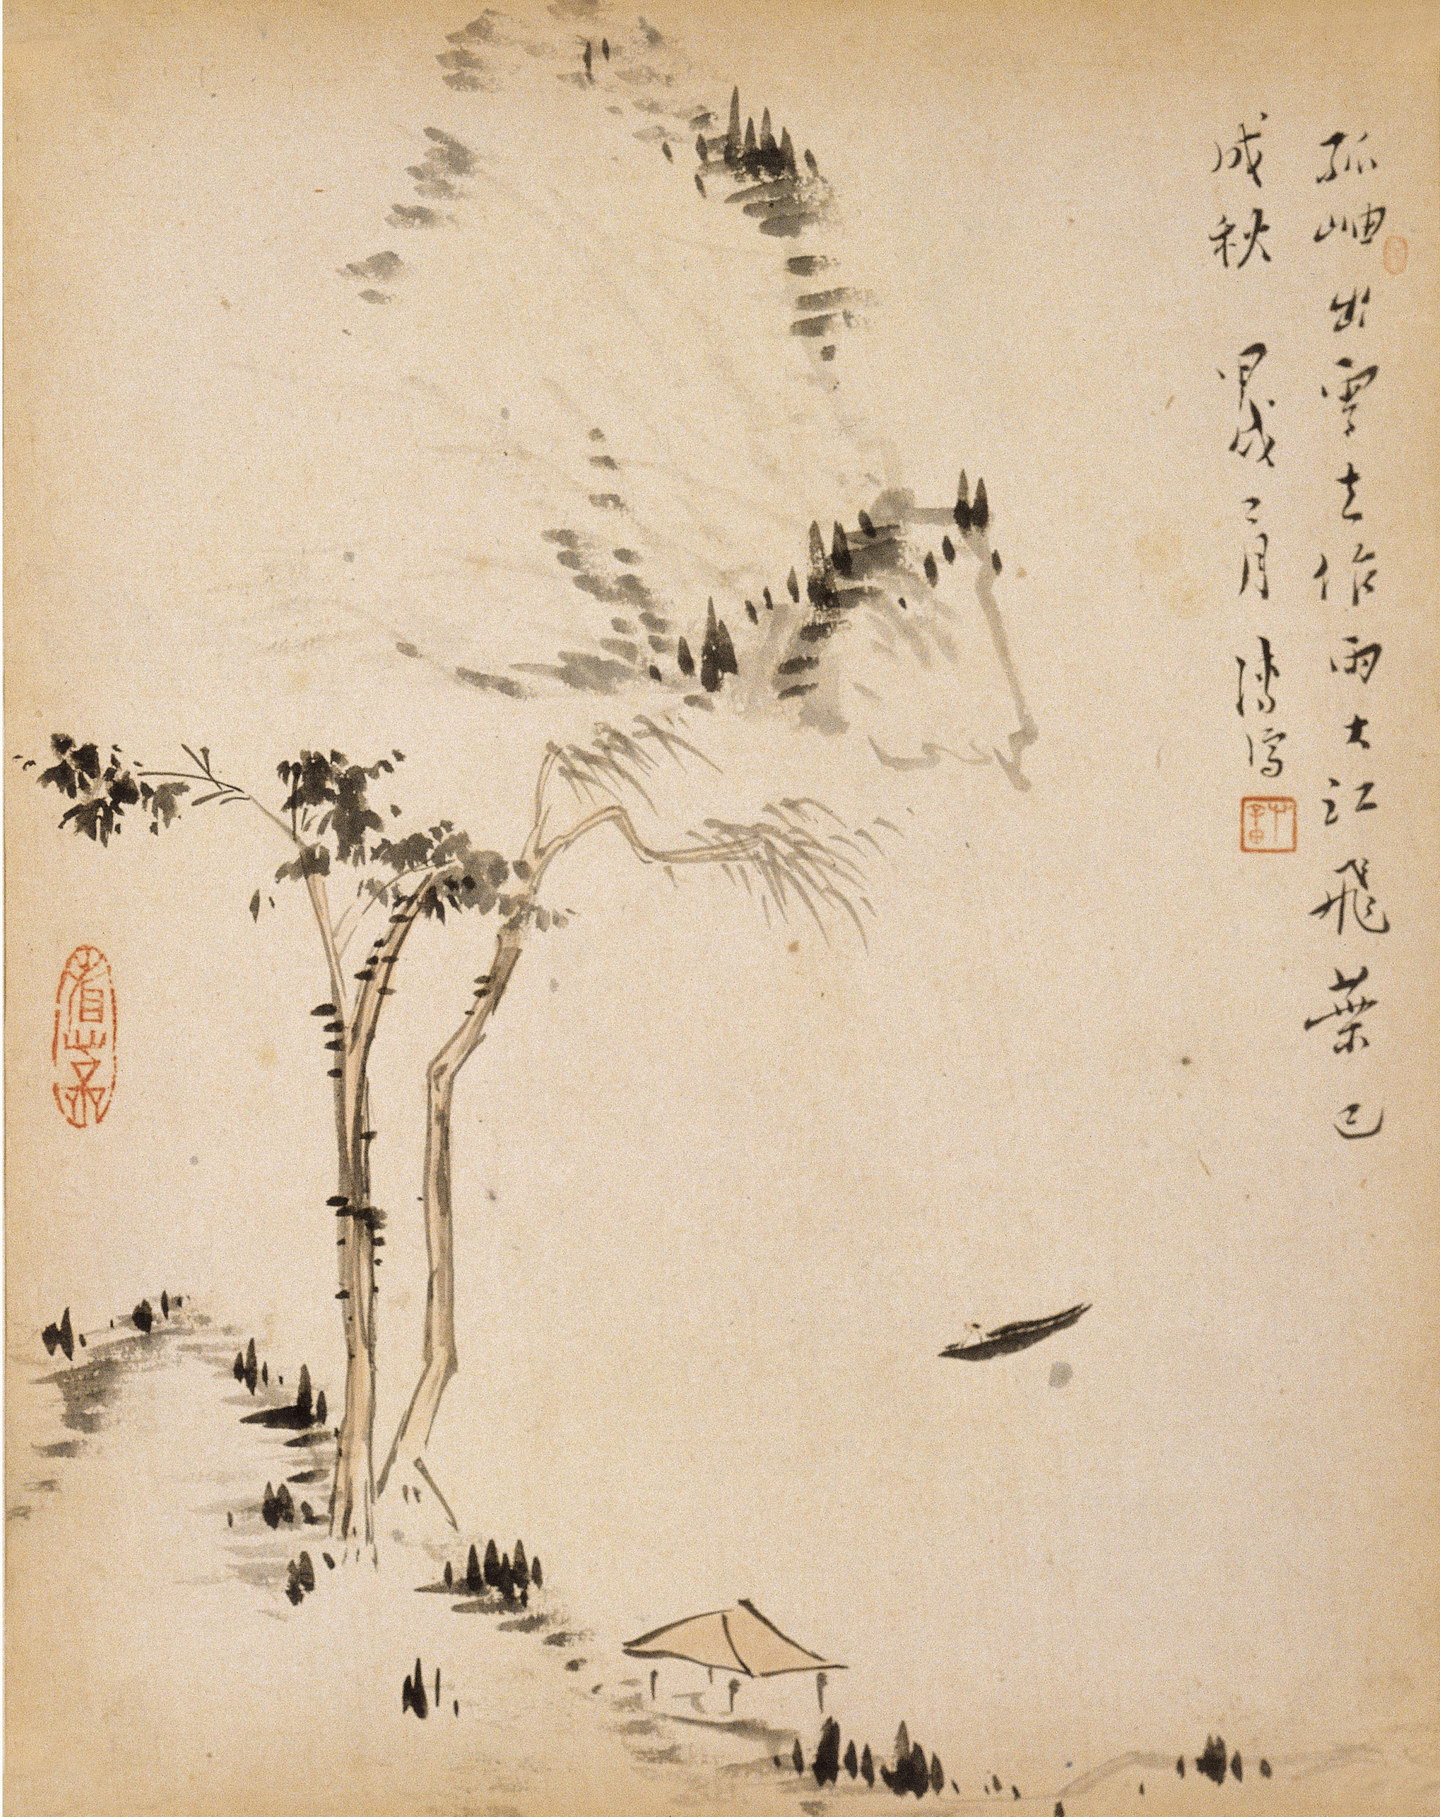 孤岫出雲去作雨大江飛葉已
成秋 甲戌二月 寫